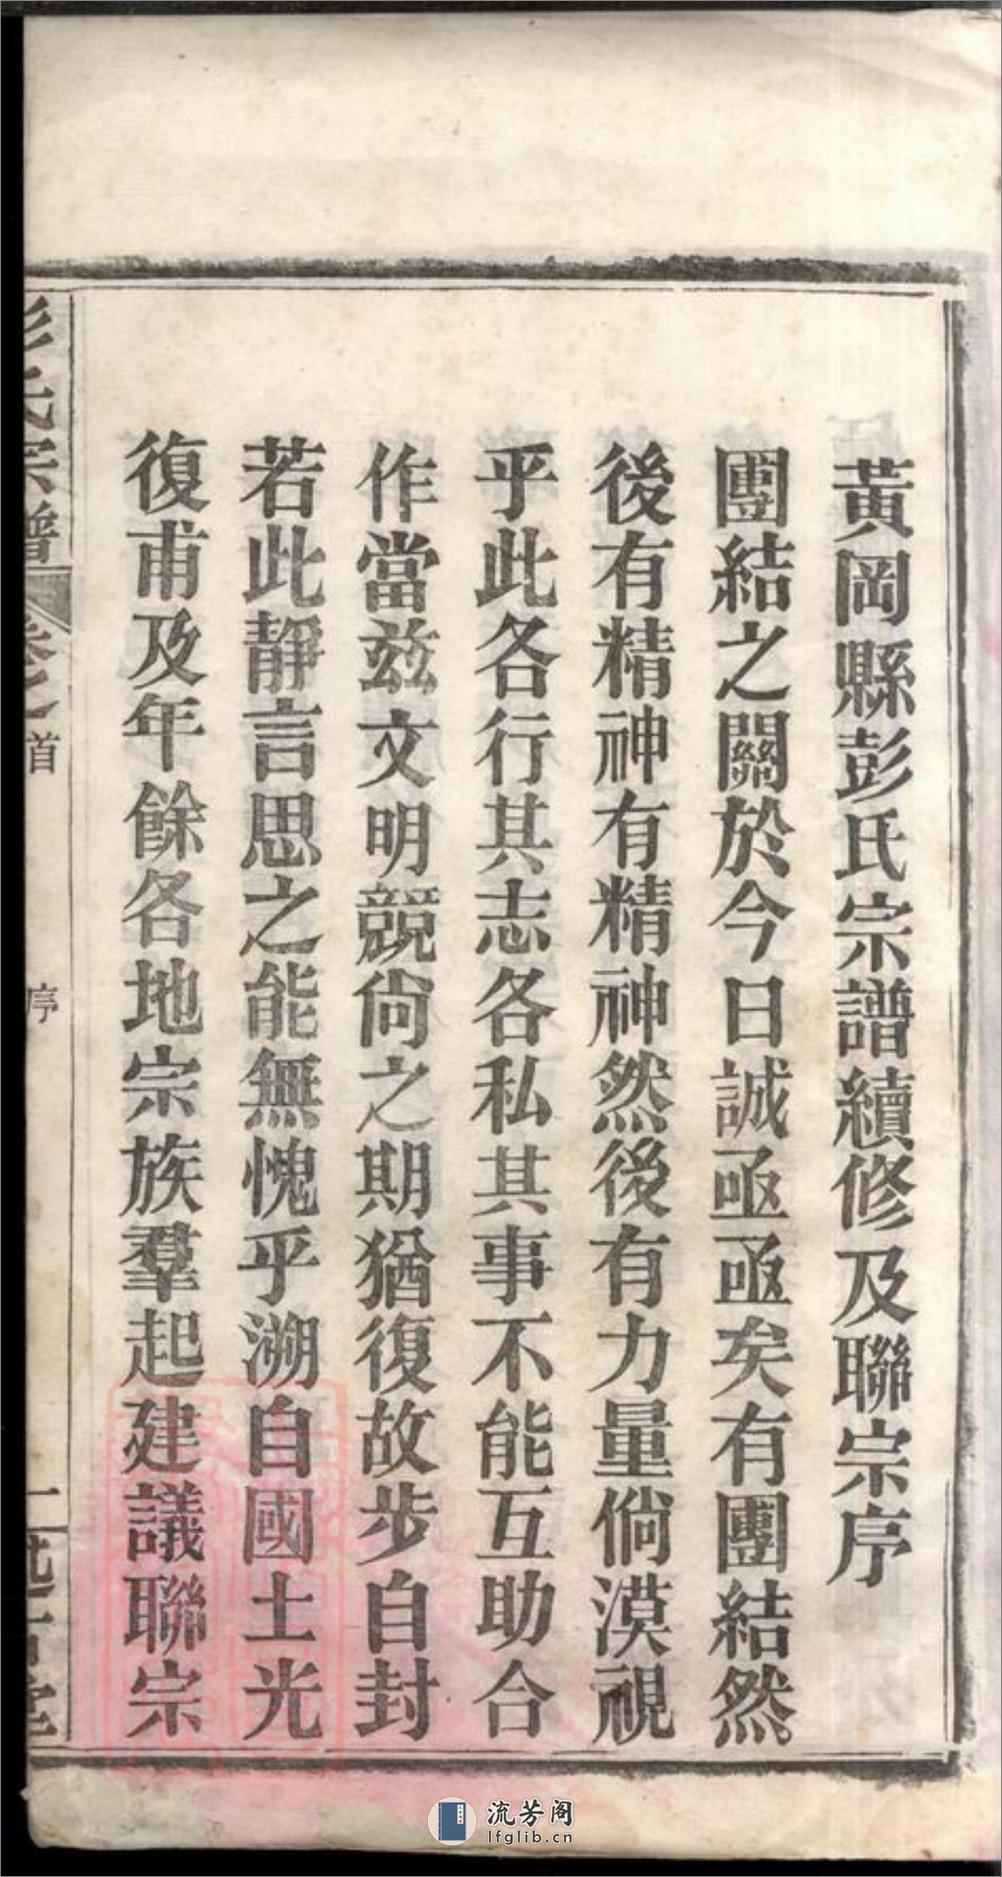 黃岡縣彭氏宗譜續修及聯宗序
團結之關於今日誠亟亟矣有團結然
後有精神有精神然後有力量倘漠視
乎此各行其志各私其事不能互助合
作當兹文明競尙之期猶復故步自封
若此靜言思之能無愧乎溯自國土光
復甫及年餘各地宗族羣起建議聯宗
彭氏宗譜
卷之首
序
一
堂
流芳阁
lfglib.cn